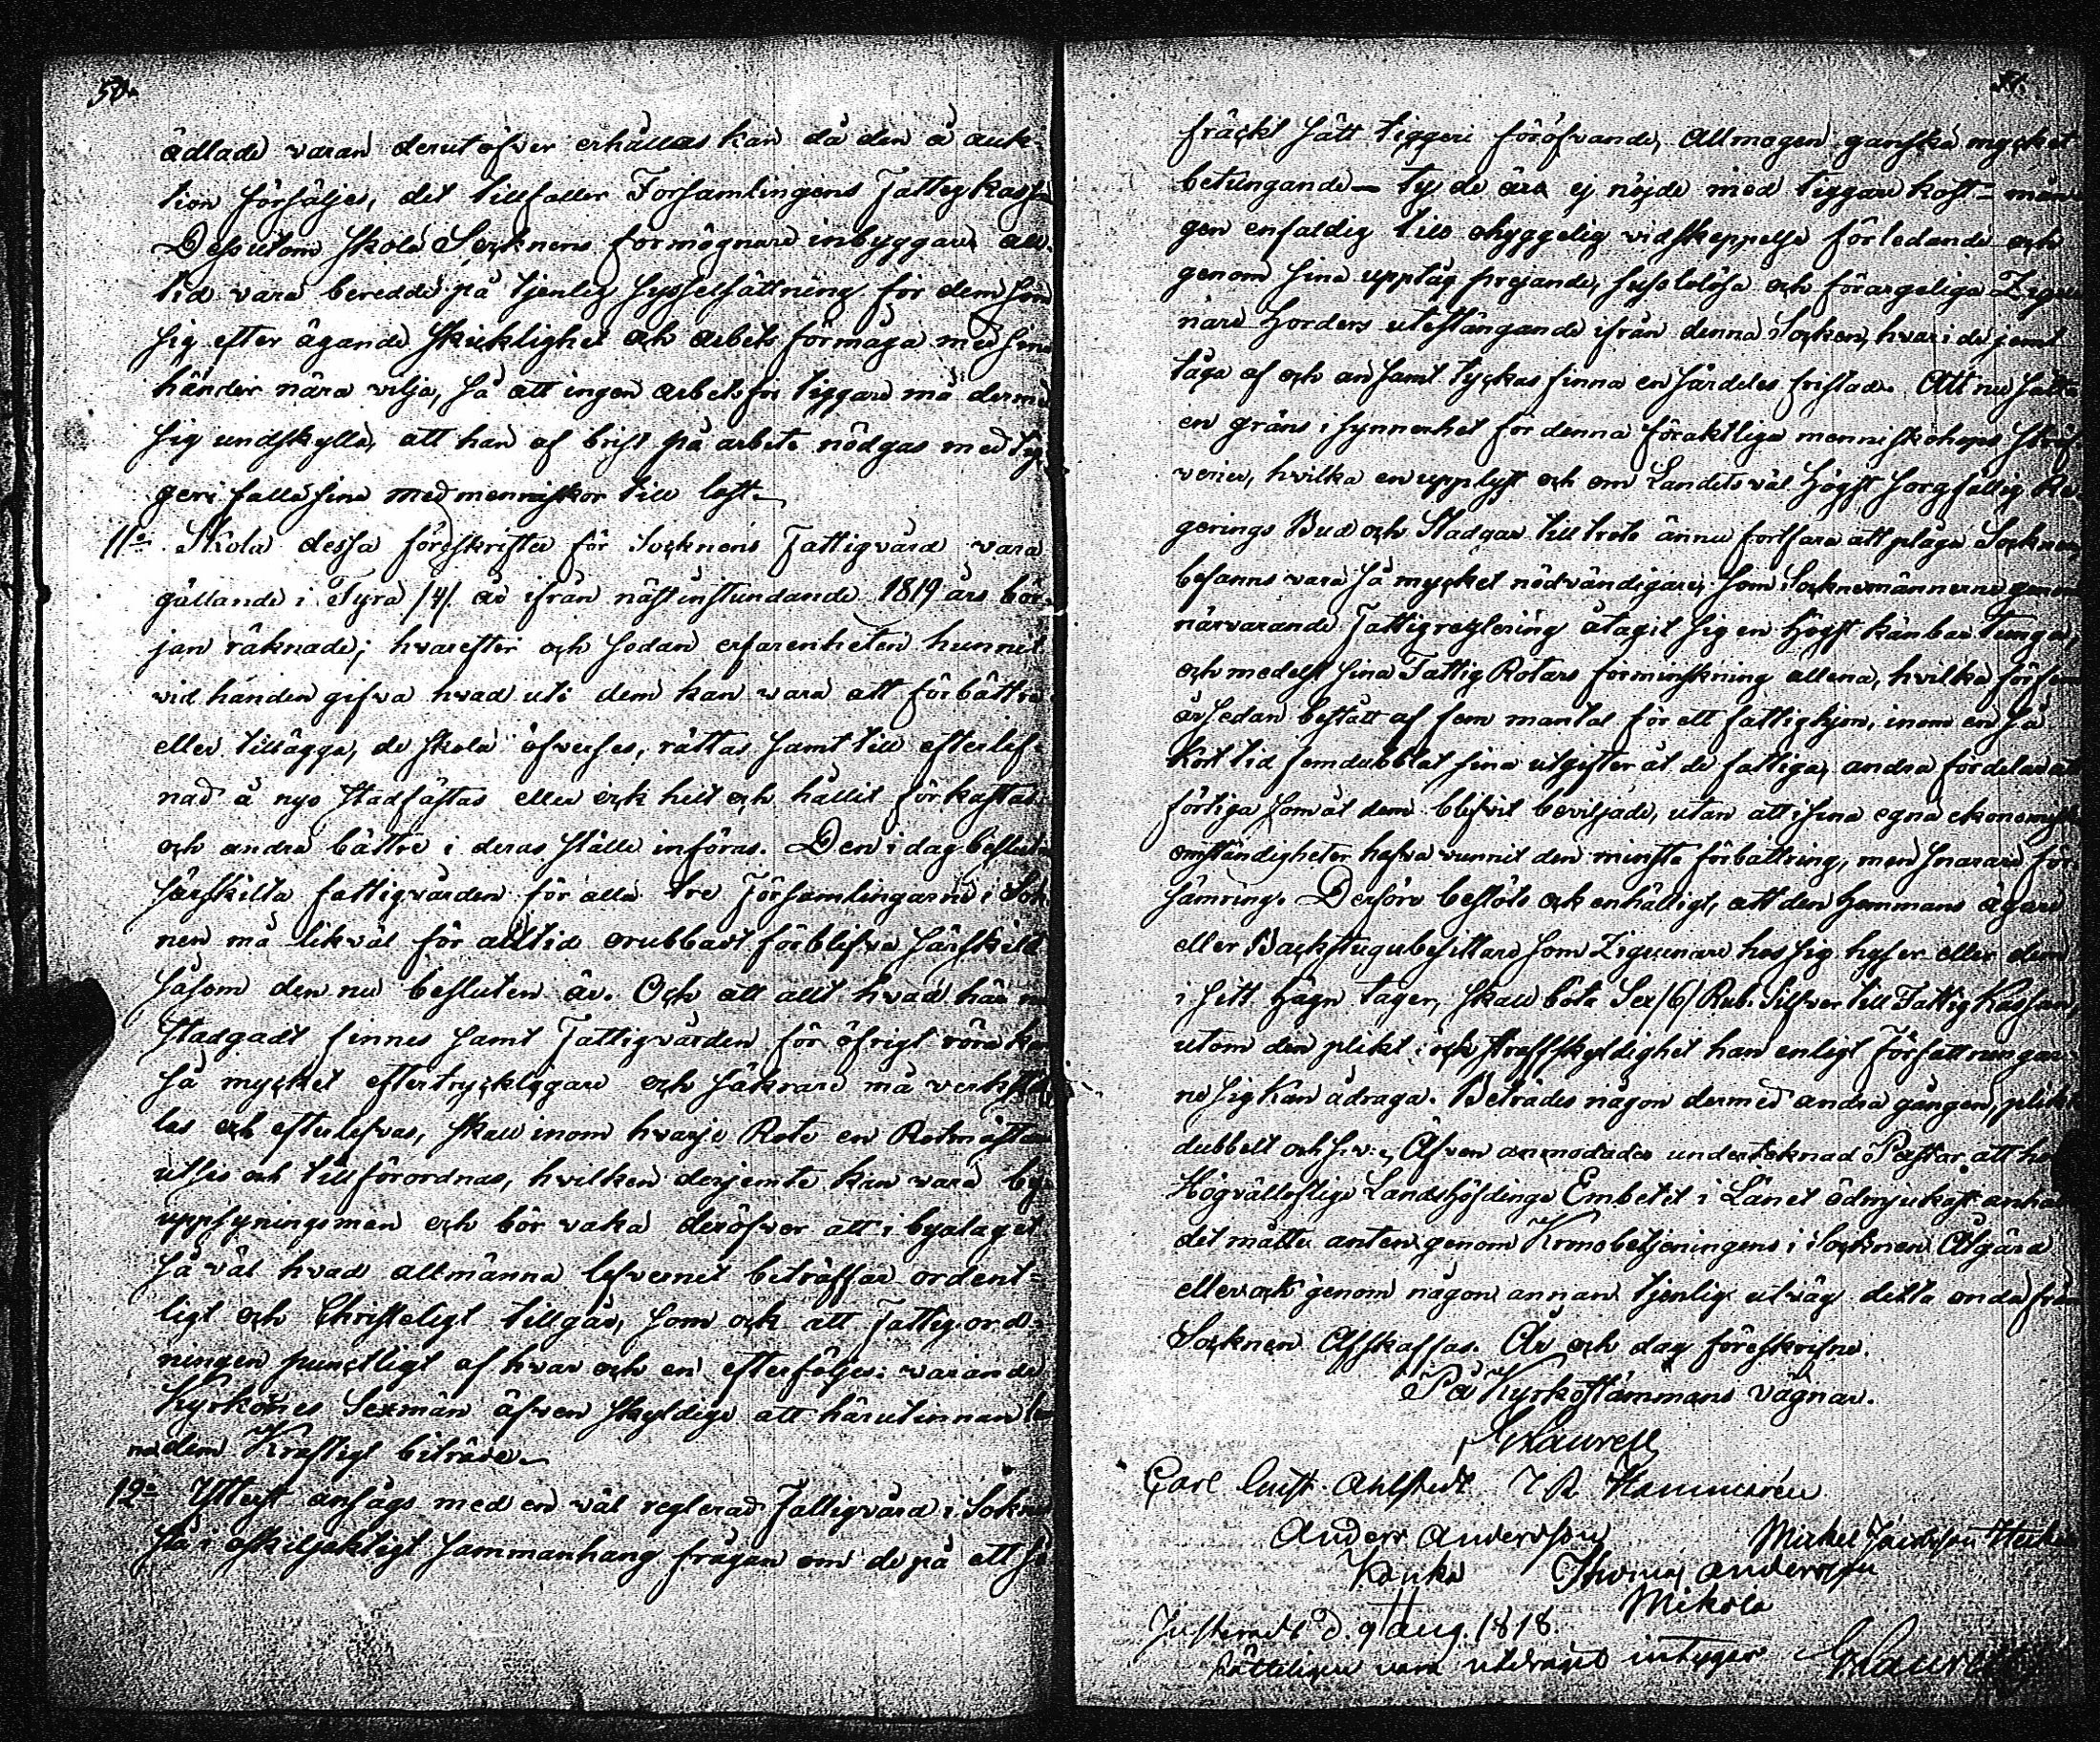 50.
ädlade varan derutöfver erhållas kan då den å auk-
tion försäljes, det tillfaller Församlingens Fattigkassa
Dessutom skola Socknens förmögnare inbyggare all-
tid vara beredde på tjenlig sysselsättning för dem som
sig efter ägande skicklighet och arbets förmåga med sina
händer nära vilja, så att ingen arbetsför tiggare må dermed
sig undskylla, att han af brist på arbete nödgas med tig
geri falla sina medmenniskor till last.
11o Skola dessa föreskrifter för Socknens Fattigvård vara
gällande i Fyra /4/ år ifrån nästinstundande 1819 års bör-
jan räknade; hvarefter och sedan erfarenheten hunnit
vid handen gifva hvad uti dem kan vara att förbättra
eller tillägga, de skola öfverses, rättas samt till efterlef-
nad å nyo stadfästas eller ock helt och hållit förkastas
och andra bättre i deras ställe införas. Den i dag beslutna
särskilta fattigvården för alla tre Församlingarne i Sok
nen må likväl för alltid orubbadt förblifva särskild
såsom den nu besluten är. Och att allt hvad här nu
stadgadt finnes samt Fattigvården för öfrigt röra kan
så mycket eftertryckligare och säkrare må verkstäl
las och efterlefvas, skall inom hvarje Rote en Rotmästare
utses och tillförordnas, hvilken derjemte kan vara by-
uppsyningsman och bör vaka deröfver att i byalaget
så väl hvad allmänna lefvernet beträffar ordent-
ligt och Christeligt tillgår, som ock att Fattig ord-
ningen punctligt af hvar och en efterföljes: varande
Kyrkones Sexmän äfven skyldige att härutinnan
dem Kraftigt biträda.
12o Ytterst ansågs med en väl reglerad Fattigvård i Sokne
stå i oskiljaktigt sammanhang frågan om de på ett så
51.
fräckt sätt tiggeri föröfvande, Allmogen ganska mycket
betungande – ty de äro ej nöjde med tiggare kost – mån
gen enfaldig till ohyggelig vidskeppelse förledande och
genom sina upptåg prejande, sysslolösa och förargeliga Zigeu
nare Horders utestängande ifrån denna Socken, hvari de jemt
tåga af och an samt tyckas finna en särdeles fristad. Att nu sätta
en gräns i synnerhet för denna föraktliga menniskohops ströf
verier, hvilka en upplyst och om Landets väl högst sorgfällig Re-
gerings Bud och Stadgar till trots ännu fortfara att plåga Socknen,
befanns vara så mycket nödvändigare, som Socknemännerne genom
närvarande Fattigreglering åtagit sig en högst känbar tunga,
och medelst sina Fattig Rotars förminskning allena, hvilka för fem
år sedan bestått af fem mantal för ett fattighjon, inom en så
kort tid femdubblat sina utgifter åt de fattiga, andra fördelar att
förtiga som åt dem blifvit beviljade, utan att i sina egna ekonomiska
omständigheter hafva vunnit den minsta förbättring, men snarare för
sämring. Derföre beslöts ock enhälligt, att den Hemmans ägare
eller Backstugubesittare som Zigeunare hos sig hyser eller dem
i sitt hägn tager, skall böta Sex /6/ Rub. Silfver till Fattig Kassan,
utom den plikt och straffskyldighet han enligt Författningar-
ne sig kan ådraga. Beträdes någon dermed andra gången, plikte
dubbelt och s.v. Äfven anmodades undertecknad Pastor att hos
Högvälloflige Landshöfdinge Embetet i Länet ödmjukast anhålla
det måtte anten genom Kronobetjeningens i Socknen Åtgärd
eller ock genom någon annan tjenlig utväg detta onda från
Socknen Afskaffas. År och dag föreskrifne.
På Kyrkostämmans vägnar.
Laurell
Carl Gust. Ahlstedt
Anders Andersson Michel Jacobsson
Kauka Thomas Andersson
Mikola
Justeradt d. 9 Aug. 1818.
Rätteligen vara utdraget intygar Laurell